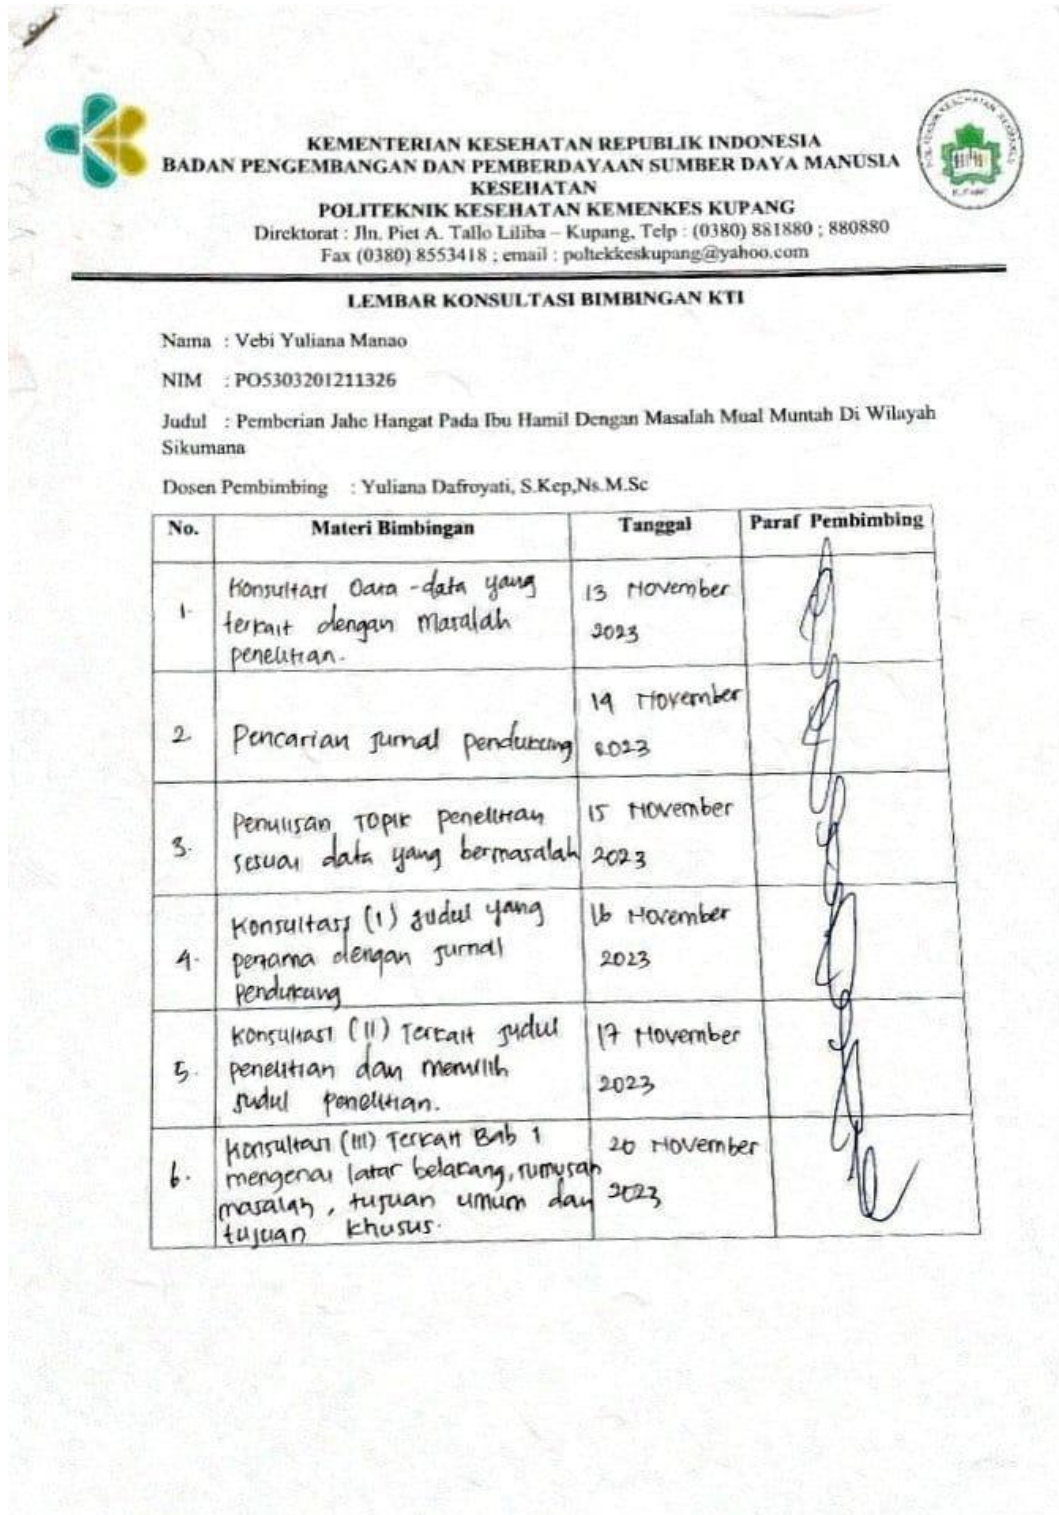 KEMENTERIAN KESEHATAN REPUBLIK INDONESIA
BADAN PENGEMBANGAN DAN PEMBERDAYAAN SUMBER DAYA MANUSIA
KESEHATAN
POLITEKNIK KESEHATAN KEMENKES KUPANG
Direktorat : Jln. Piet A. Tallo Liliba – Kupang, Telp : (0380) 881880 ; 880880
Fax (0380) 8553418 ; email : poltekkeskupang@yahoo.com
LEMBAR KONSULTASI BIMBINGAN KTI
Nama : Vebi Yuliana Manao
NIM : PO5303201211326
Judul : Pemberian Jahe Hangat Pada Ibu Hamil Dengan Masalah Mual Muntah Di Wilayah
Sikumana
Dosen Pembimbing : Yuliana Dafroyati, S.Kep,Ns.M.Sc
No. Materi Bimbingan Tanggal Paraf Pembimbing
1. Konsultasi Data-data yang
terkait dengan masalah
penelitian.
13 November
2023
2. Pencarian jurnal pendukung
14 November
2023
3. Penulisan Topik penelitian
sesuai data yang bermasalah
15 November
2023
4. Konsultasi (I) judul yang
pertama dengan jurnal
Pendukung
16 November
2023
5. Konsultasi (II) Terkait judul
penelitian dan memilih
judul penelitian.
17 November
2023
6. Konsultasi (III) Terkait Bab 1
mengenai latar belakang, rumusan
masalah, tujuan umum dan
tujuan khusus.
20 November
2023